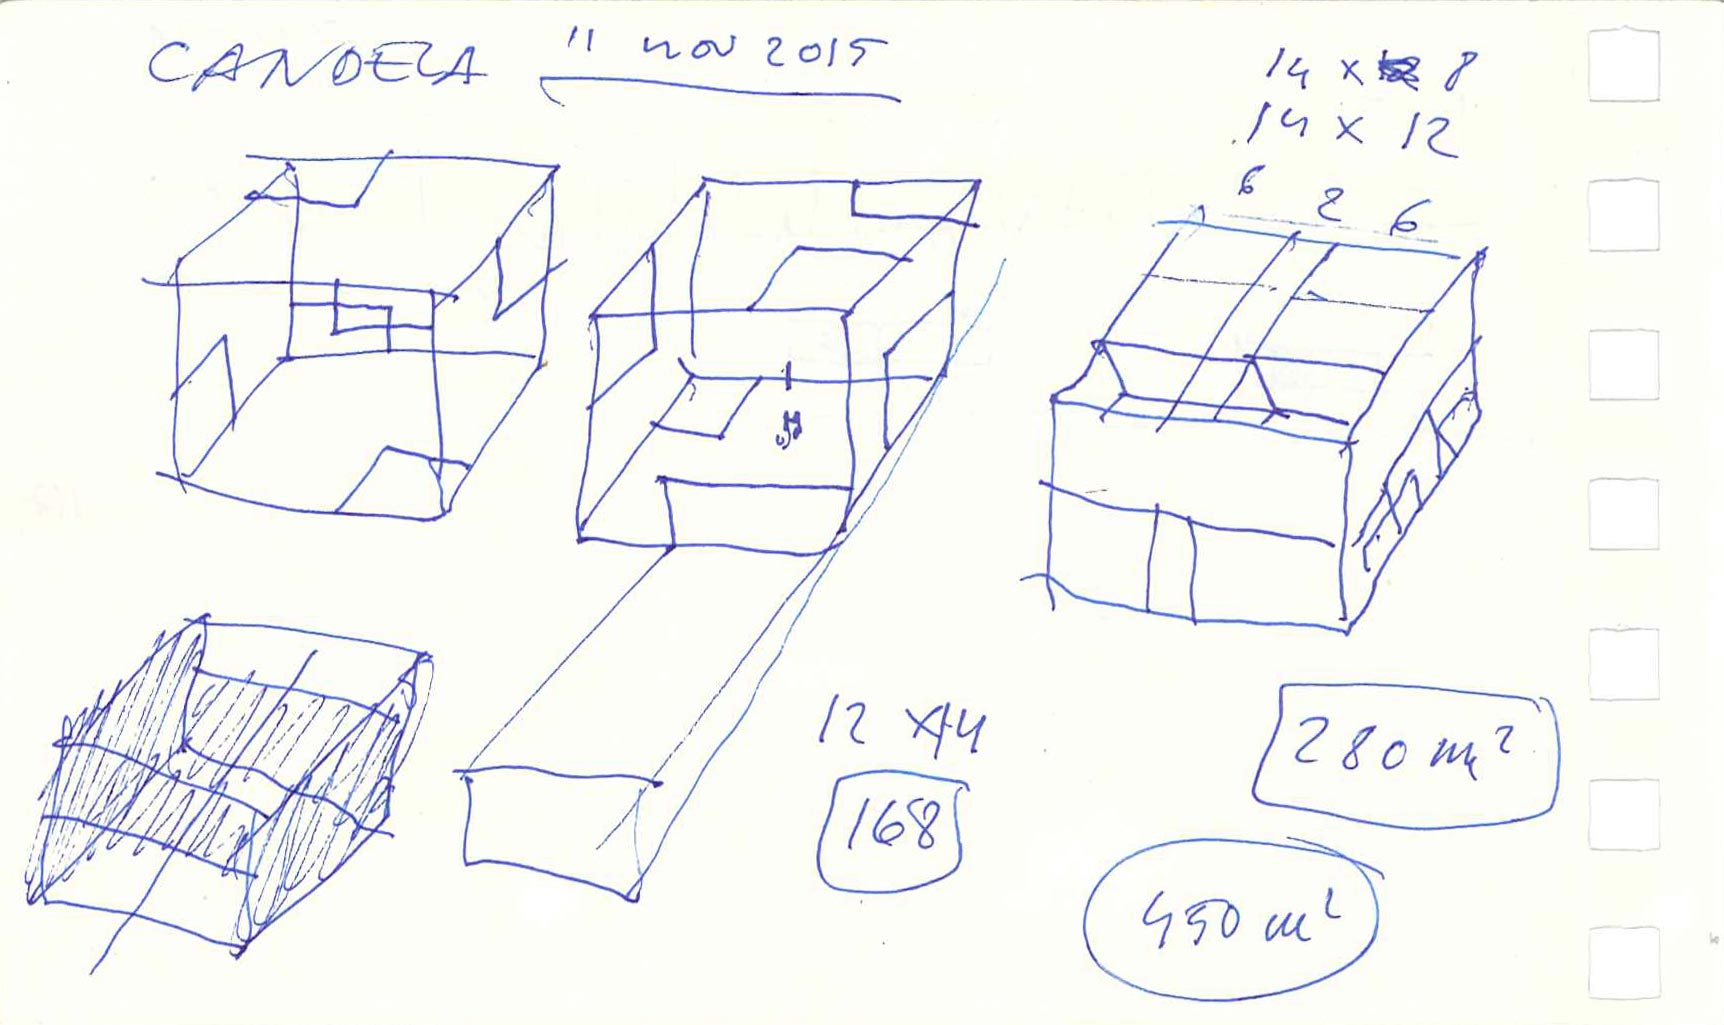 CANDELA 11 NOV 2015
14 x 8
14 x 12
6 2 6
12 x 14
168
280 m²
450 m²